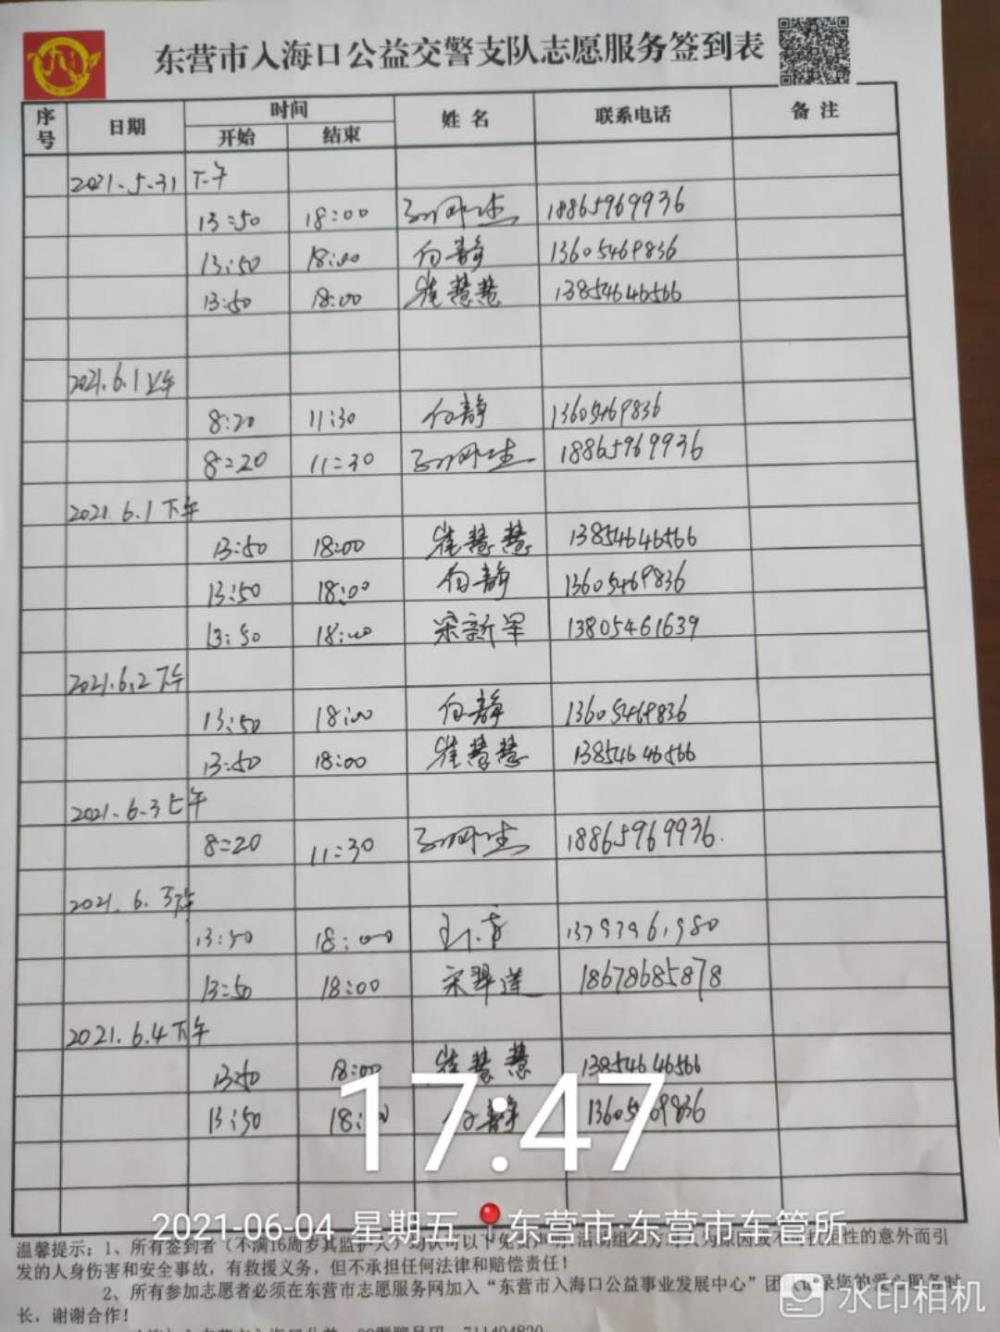 东营市入海口公益交警支队志愿服务签到表
序号 日期 时间 姓名 联系电话 备注
开始 结束
2021.5.31 下午
13:50 18:00 18865969936
13:50 18:00 白静 13605469836
13:50 18:00 崔慧慧 13854646566
2021.6.1上午
8:20 11:30 白静 13605469836
8:20 11:30 18865969936
2021.6.1下午
13:50 18:00 崔慧慧 13854646566
13:50 18:00 白静 13605469836
13:50 18:00 宋新军 13805461639
2021.6.2下午
13:50 18:00 白静 13605469836
13:50 18:00 崔慧慧 13854646566
2021.6.3上午
8:20 11:30 18865969936.
2021.6.3下午
13:50 18:00
13:50 18:00 宋翠莲 18678685878
2021.6.4下午
13:50 18:00 崔慧慧 13854646566
13:50 18:00 白静 13605469836
17:47
2021-06-04 星期五 东营市·东营市车管所
温馨提示：1、所有签到者（不满16周岁其监护人）均认可以下免责声明:活动组织方 的意外而引
发的人身伤害和安全事故，有救援义务，但不承担任何法律和赔偿责任！
2、所有参加志愿者必须在东营市志愿服务网加入“东营市入海口公益事业发展中心”团 录您的爱心服务时
长，谢谢合作！
水印相机